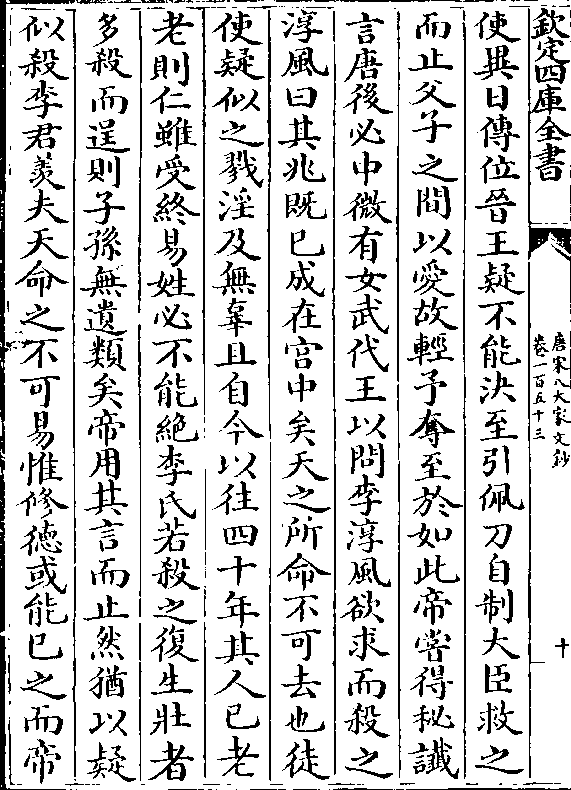 欽定四庫全書
唐宋八大家文鈔
卷一百五十三
十
使異日傳位晉王疑不能決至引佩刀自制大臣救之
而止父子之間以愛故輕予奪至於如此帝嘗得秘讖
言唐後必中微有女武代王以問李淳風欲求而殺之
淳風曰其兆既已成在宫中矣天之所命不可去也徒
使疑似之戮淫及無辜且自今以往四十年其人已老
老則仁雖受終易姓必不能絶李氏若殺之復生壯者
多殺而逞則子孫無遺類矣帝用其言而止然猶以疑
似殺李君羨夫天命之不可易惟修德或能已之而帝